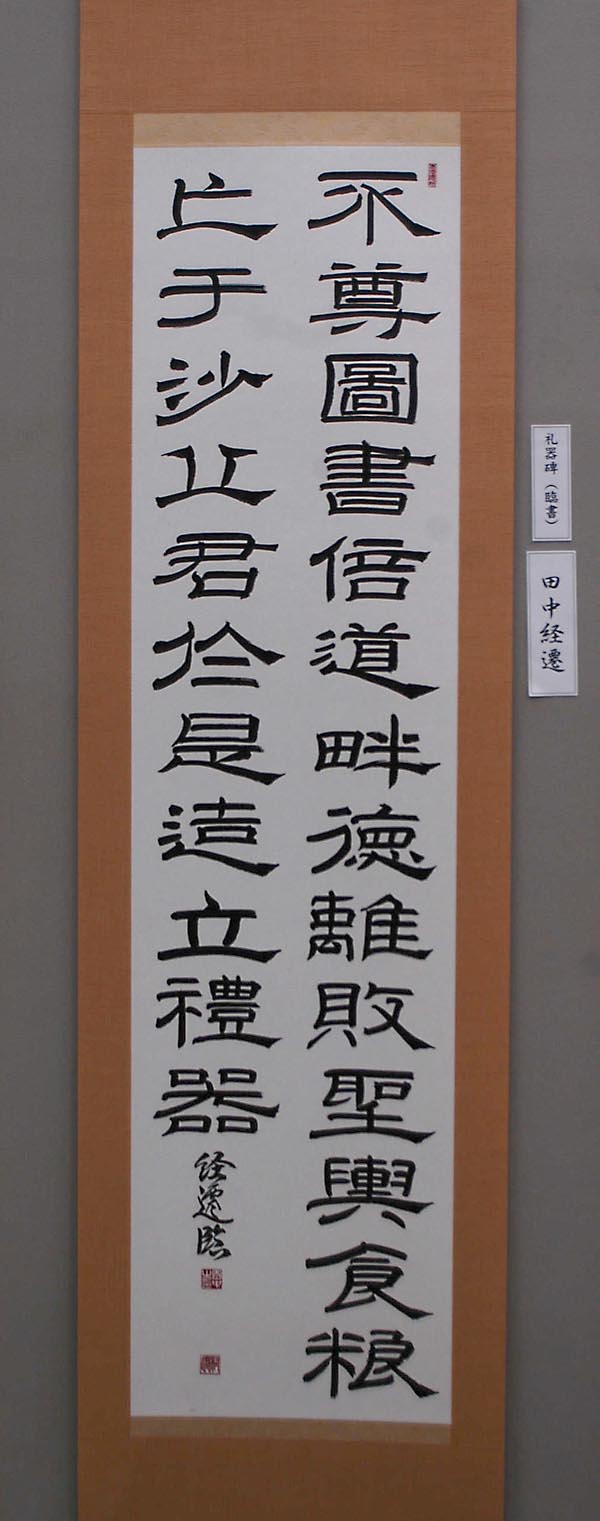 不尊圖書倍道畔德離敗聖輿食粮
亡于沙丘君於是造立禮器
経遷臨
礼器碑(臨書)
田中経遷